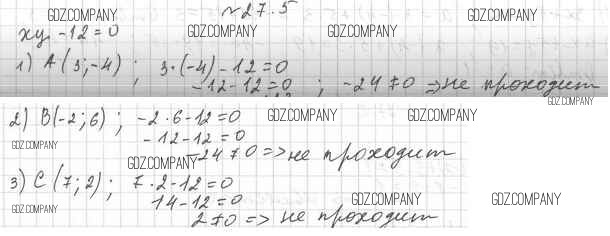 №27.5
GDZ.COMPANY
xy - 12 = 0 GDZ.COMPANY GDZ.COMPANY
1) A(3;-4) ; 3·(-4)-12=0
-12-12=0 ; -24≠0 ⇒ не проходит
GDZ.COMPANY
2) B(-2;6) ; -2·6-12=0 GDZ.COMPANY GDZ.COMPANY
-12-12=0
GDZ.COMPANY -24≠0 => не проходит
GDZ.COMPANY
3) C(7;2) ; 7·2-12=0
14-12=0 GDZ.COMPANY GDZ.COMPANY
GDZ.COMPANY 2≠0 => не проходит